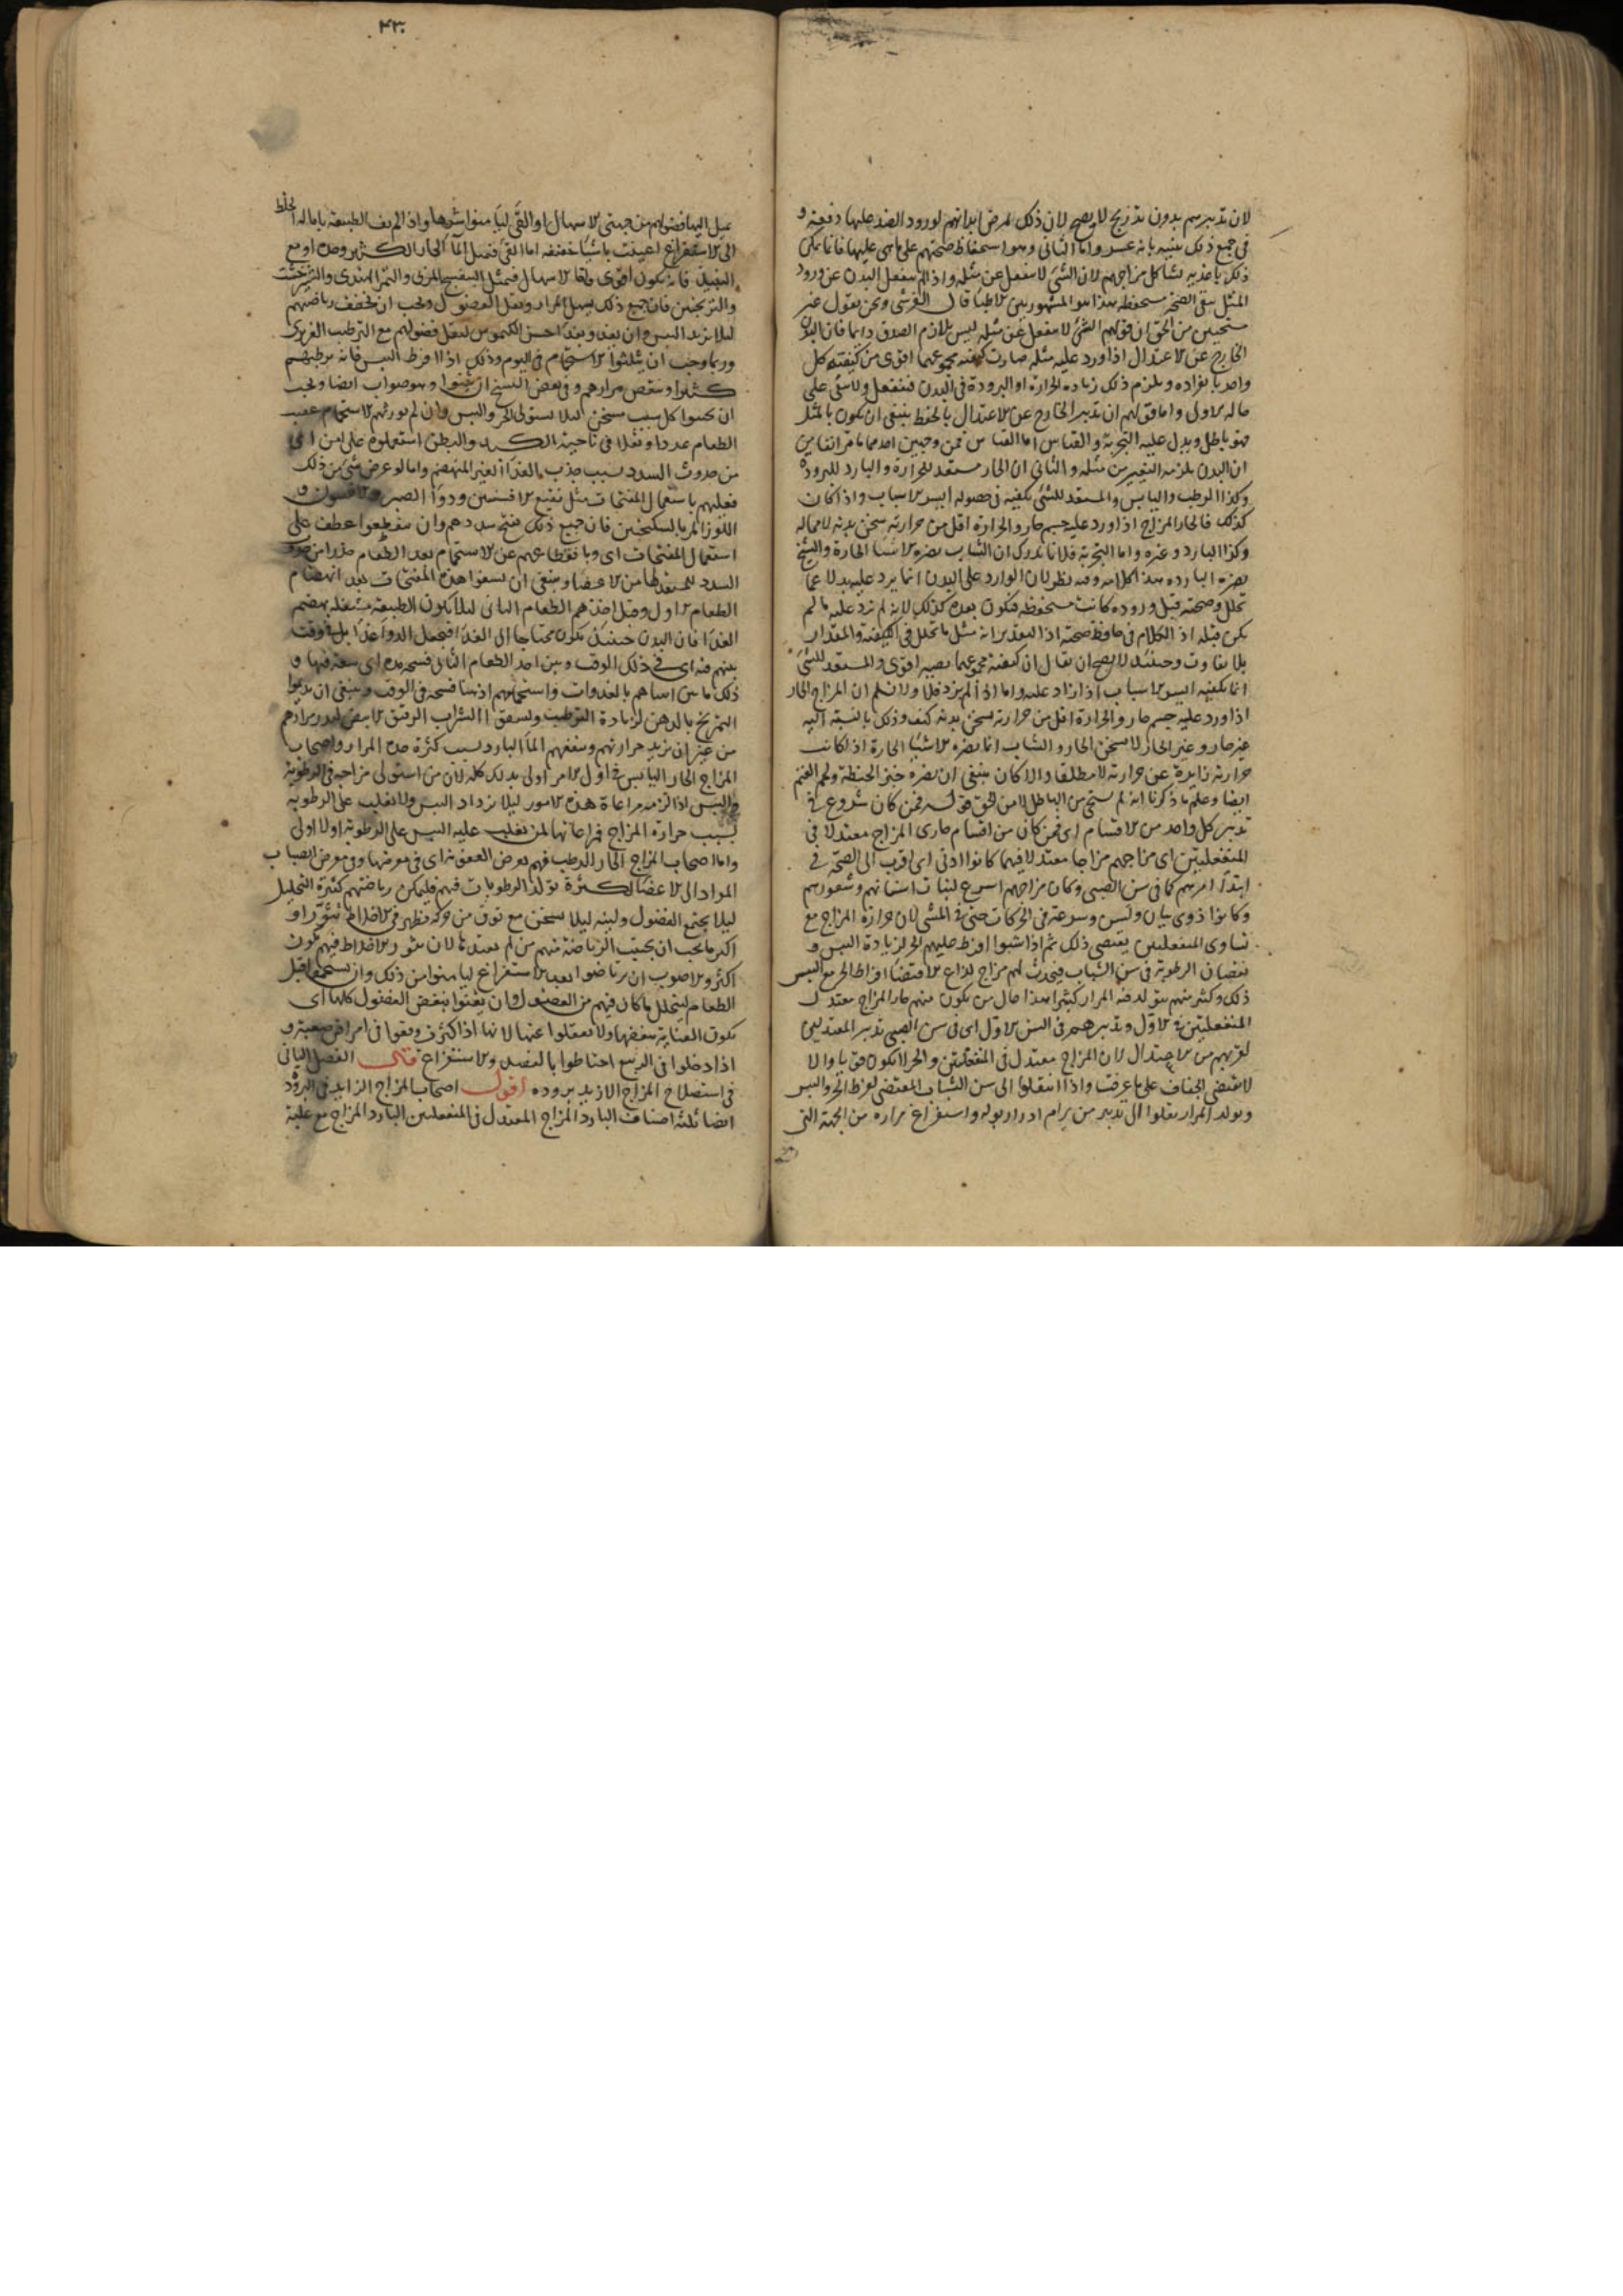 لان تدبيرهم بدون تدريج لا يصح لان ذلك يمرض ابدانهم لورود الضد عليها دفعة و
في جميع ذلك بانه عسر واما الثاني وهو استحفاظ صحتهم على ما هي عليها فانما يمكن
ذلك باغذية تشاكل مزاجهم لان الشئ لا ينفعل عن مثله واذا لم ينفعل البدن عن ورود
المثل بقي الصحة مستحفظة هذا هو المشهور بين الاطبا قال القرشى ونحن نقول غير
مستحيين من الحق ان قولهم الشئ لا ينفعل عن مثله ليس بلازم الصدق دائما فان البدن
الخارج عن الاعتدال اذا ورد عليه مثله صارت كيفية مجموعهما اقوى من كيفية كل
واحد بانفراده ويلزم ذلك زيادة الحرارة او البرودة في البدن فينفعل ولا يبقى على
حاله الاول واما قولهم ان تدبير الخارج عن الاعتدال بالحفظ ينبغي ان يكون بالمثل
فهو باطل ويدل عليه التجربة والقياس اما القياس فمن وجهين احدهما ما مر انفا من
ان البدن يلزمه التغير من مثله والثاني ان الحار مستعد للحرارة والبارد للبرودة
وكذا الرطب واليابس والمستعد للشئ يكفيه في حصوله ايسر الاسباب واذا كان
كذلك فالحار المزاج اذا ورد عليه جسم حار والحرارة اقل من حرارته سخن بدنه لا محالة
وكذا البارد وغيره واما التجربة فلانا ندرك ان الشاب يضره الاشيا الحارة والشيخ
يضره الباردة هذا كلامه وفيه نظر لان الوارد على البدن انما يرد عليه بدلا عما
تحلل وصحته قبل وروده كانت مستحفظة فتكون بعده كذلك لانه لم يرد عليه ما لم
يكن قبله اذ الكلام في حافظ صحته اذ التقدير انه مثل ما تحلل في الكيفية والمقدار
بلا تفاوت وحينئذ لا يصح ان يقال ان كيفية مجموعهما يصير اقوى والمستعد للشئ
انما يكفيه ايسر الاسباب اذا زاد عليه واما اذا لم يزد فلا ولا نسلم ان المزاج الحار
اذا ورد عليه جسم حار والحرارة اقل من حرارته سخن بدنه كيف وذلك بالنسبة اليه
غير حار وغير الحار لا يسخن الحار والشاب انما يضره الاشيا الحارة اذا كانت
حرارته زايدة عن حرارته لا مطلقا والا كان ينبغي ان يضره خبز الحنطة ولحم الغنم
ايضا وعلم ما ذكرنا انه لم يستحي من الباطل لا من الحق قوله فمن كان شروع في
تدبير كل واحد من الاقسام اى فمن كان من اقسام حارى المزاج معتدلا في
المنفعلتين اى مزاجهم مزاجا معتدلا فيهما كانوا ادنى اى اقرب الى الصحة في
ابتدا امرهم كما في سن الصبى وكان مزاجهم اسرع لنبات اسنانهم وشعورهم
وكانوا ذوى بيان ولسن وسرعة في الحركات حتى في المشى لان حرارة المزاج مع
تساوى المنفعلتين يقتضى ذلك ثم اذا شبوا افرط عليهم الحر لزيادة اليبس و
نقصان الرطوبة في سن الشباب فيحدث لهم مزاج لذاع لاقتضا افراط الحر مع اليبس
ذلك وكثير منهم يتولد فيه المرار كثيرا هذا حال من يكون منهم حار المزاج معتدل
المنفعلتين في الاول وتدبيرهم في السن الاول اى في سن الصبى تدبير المعتدلين
لقربهم من الاعتدال لان المزاج معتدل في المنفعلتين والحر لا يكون قويا والا
لاقتضى الجفاف على ما عرفت واذا انتقلوا الى سن الشباب المقتضى لفرط الحر واليبس
وتولد المرار نقلوا الى تدبير من يرام ادرار بوله واستفراغ مراره من الجهة التى
٤٣٠
يميل اليها فضولهم من جهتى الاسهال او القئ ليا منوا شرها واذا لم تف الطبيعة بامالة الخلط
الى الاستفراغ اعينت باشيا خفيفة اما القئ فبمثل الما الحار الكثير وحده او مع
النبيذ فانه يكون اقوى واما الاسهال فبمثل البنفسج المربى والتمر الهندى والشيرخشت
والترنجبين فان جميع ذلك يسهل المرار ويقل الفضول ويجب ان يخفف رياضتهم
ليلا يزيد اليبس وان يغذو بغذا حسن الكيموس ليقل فضولهم مع الترطيب الغزير
وربما وجب ان يثلثوا الاستحمام في اليوم وذلك اذا افرط اليبس فانه يرطبهم
كثيرا وينقص مرارهم وفي بعض النسخ ان يثنوا وهو صواب ايضا ويجب
ان يجنبوا كل سبب مسخن ليلا يستولى الحر واليبس وان لم يورثهم الاستحمام عقيب
الطعام تمددا وثقلا في ناحية الكبد والبطن استعملوه على امن اى
من حدوث السدد بسبب جذب الغذا الغير المنهضم واما لو عرض شئ من ذلك
فعليهم باستعمال المفتحات مثل نقيع الافسنتين ودوا الصبر والانيسون و
اللوز المر بالسكنجبين فان جميع ذلك مفتح سددهم وان ينقطعوا عطف على
استعمال المفتحات اى وبانقطاعهم عن الاستحمام بعد الطعام حذرا من حدوث
السدد المستعد لها من الاعضا وينبغي ان يسقوا هذه المفتحات بعد انهضام
الطعام الاول وقبل اخذهم الطعام الثاني ليلا يكون الطبيعة مشتغلة بهضم
الغذا فان البدن حينئذ يكون محتاجا الى الغذا فيجعل الدوا غذا بل في وقت
بينهم فيه اى في ذلك الوقت وبين اخذ الطعام الثاني فسحة مدة اى سعة فيها و
ذلك ما بين انتباههم بالغدوات واستحمامهم اذ هنا فسحة في الوقت وينبغي ان يديموا
التمريخ بالدهن لزيادة الترطيب ولسقى الشراب الرقيق الابيض ليدر مرارهم
من غير ان يزيد حرارتهم وينفعهم الما البارد بسبب كثرة حدة المرار واصحاب
المزاج الحار اليابس في اول الامر اولى بذلك كله لان من استولى مزاجه في الرطوبة
واليبس اذا لزمه مراعاة هذه الامور ليلا يزداد اليبس ولا يغلب على الرطوبة
بسبب حرارة المزاج فمراعاتها لمن تغلب عليه اليبس على الرطوبة اولا اولى
واما اصحاب المزاج الحار الرطب فهم بعرض العفونة اى في معرضها وفي معرض انصباب
المواد الى الاعضا لكثرة تولد الرطوبات فيهم فليكن رياضتهم كثيرة التحليل
ليلا يجتمع الفضول ولينة ليلا يسخن مع توق من حركة تظهر في الاخلاط تثورا و
اكثر ما يجب ان يجتنب الرياضة منهم من لم يعتدها لان تثور الاخلاط فيهم يكون
اكثر والاصوب ان يرتاضوا بعد الاستفراغ ليا منوا من ذلك وان يستحموا قبل
الطعام ليتحلل ما كان فيهم من الفضول وان يعتنوا بنفض الفضول كلها اى
يكون العناية بنفضها ولا يغفلوا عنها لانها اذا كثرت وقعوا في امراض صعبة و
اذا دخلوا في الربيع احتاطوا بالفصد والاستفراغ قال الفصل الثاني
في استصلاح المزاج الازيد برودة اقول اصحاب المزاج الزايد في البرودة
ايضا ثلثة اصناف البارد المزاج المعتدل في المنفعلتين البارد المزاج مع غلبة